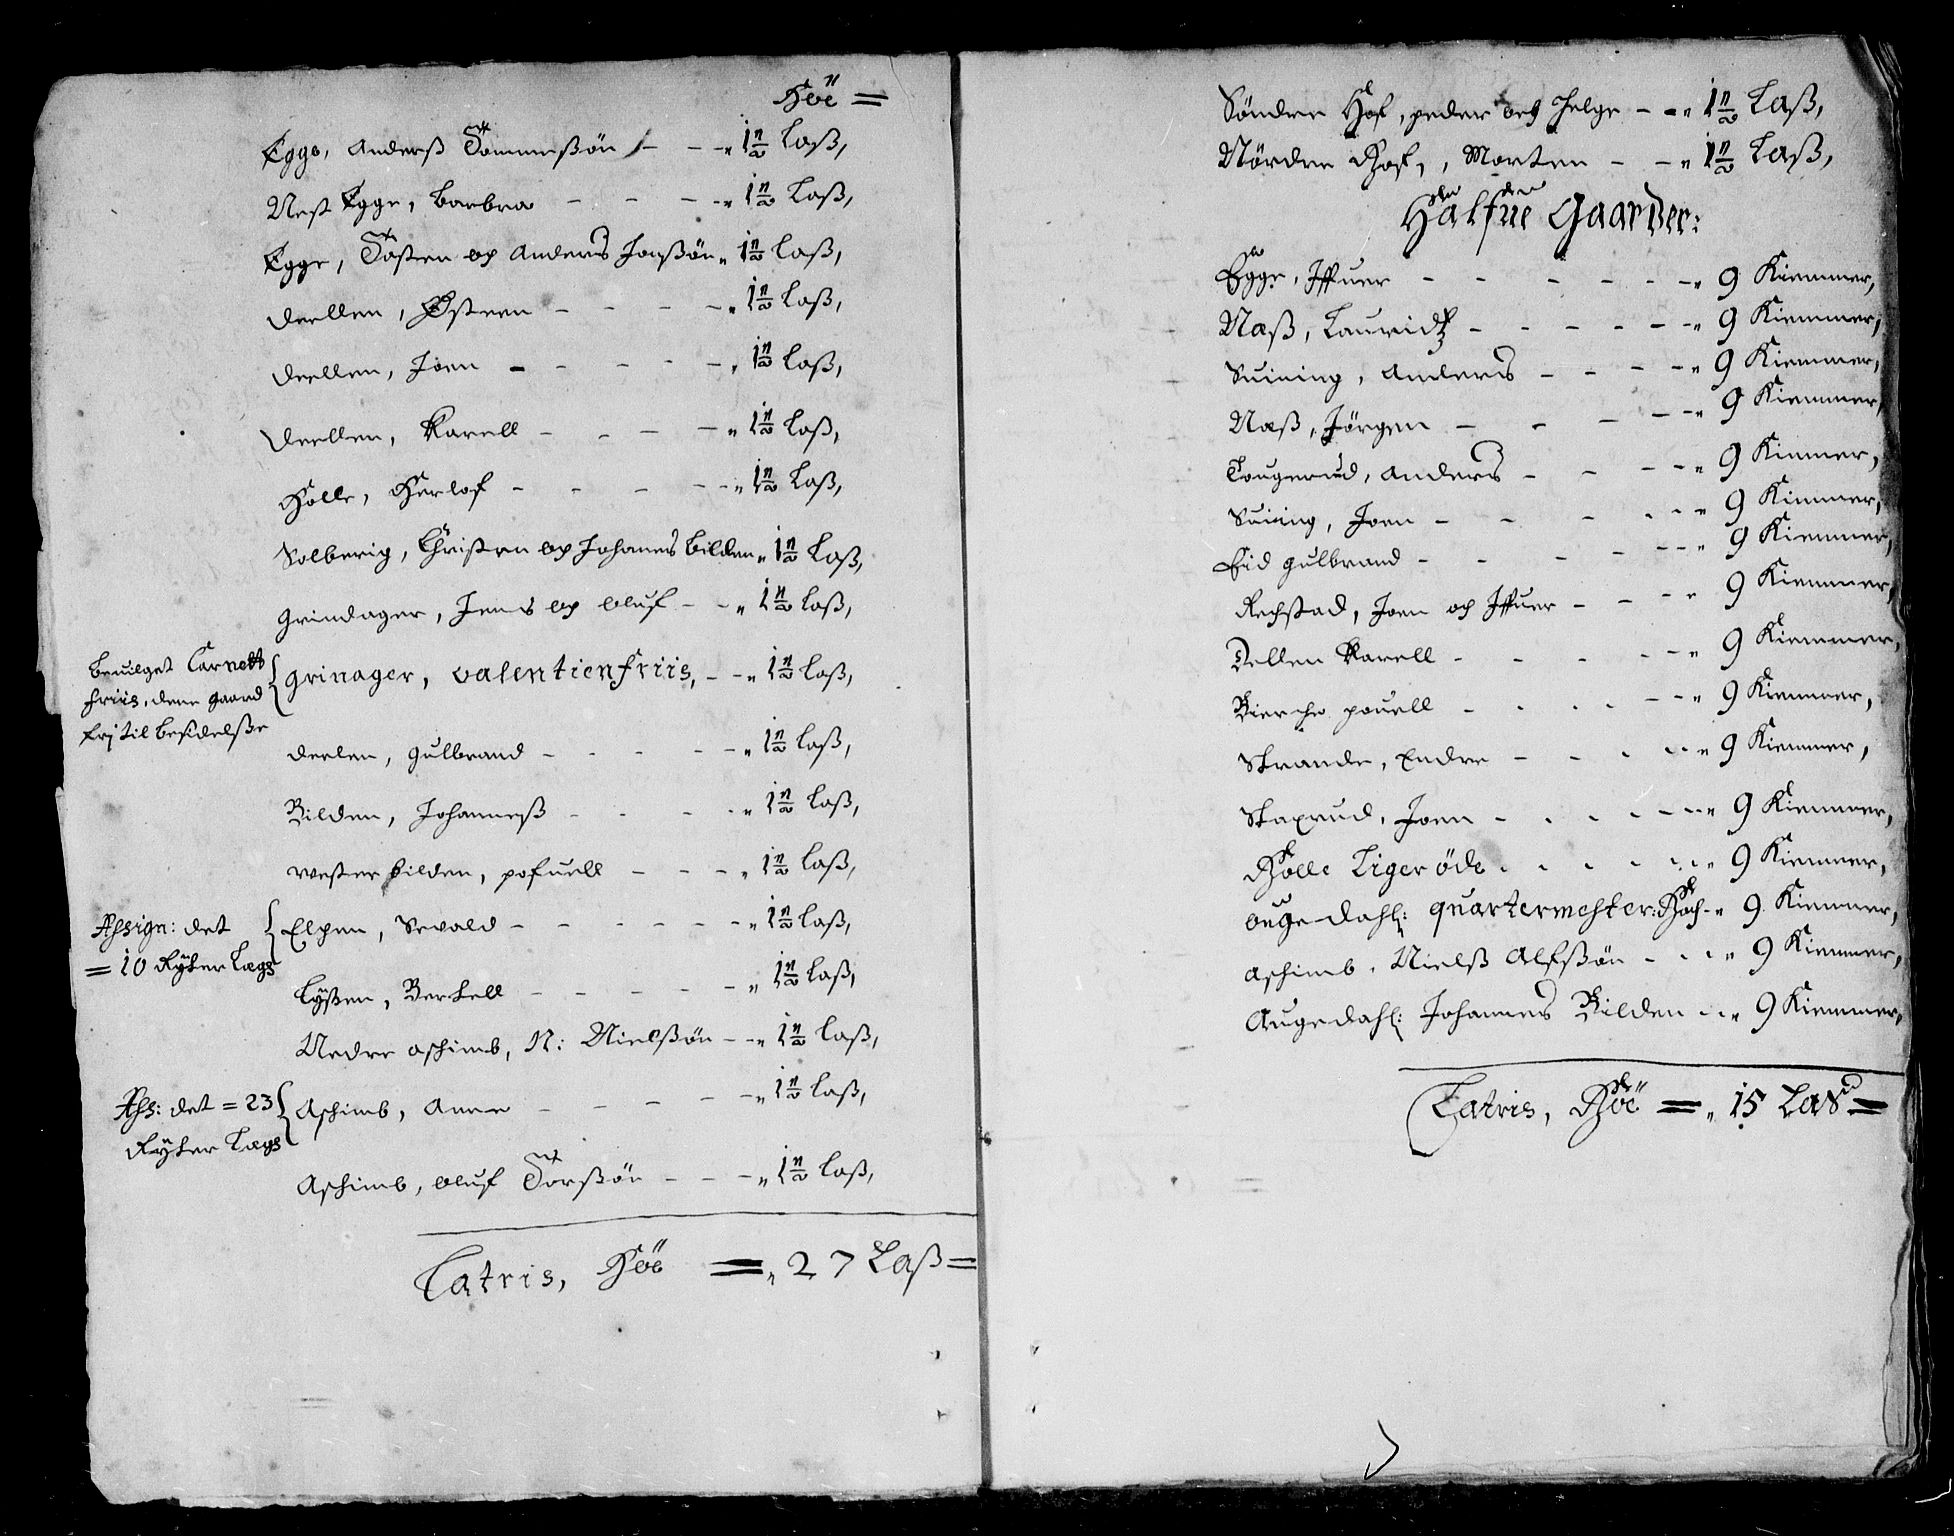 Höe =
Egge, Anderß Tommeßön - - - 1½ Laß,
Nest Egge, Barbra - - - 1½ Laß,
Egge, Tosten og Anders Joenßön 1½ Laß,
Deellen, Østeen - - - - 1½ Laß,
Deellen, Joen - - - - - 1½ Laß,
Deellen, Karell - - - - 1½ Laß,
Holle, Herlof - - - - 1½ Laß,
Solberig, Christen og Johanes Bilden 1½ Laß,
Grindager, Jens og Oluf - - 1½ Laß,
Beuilget Carnett
friis, dene gaard
frj til besidelße
Grinager, valentienfriis, - - 1½ Laß,
Deelen, Gulbrand - - - - 1½ Laß,
Bilden, Johanneß - - - - 1½ Laß,
Wester bilden, pofuell - - - 1½ Laß,
Assign: det
= 10 Ryter Legs
Elpen, Sevald - - - - - 1½ Laß,
Lysten, Berkell - - - - - 1½ Laß,
Nedre Aschimb, N: Nielßön - - 1½ Laß,
Ass: det = 23
Ryter Legs
Aschimb, Anne - - - - - 1½ Laß,
Aschimb, Oluf Torßön - - - 1½ Laß,
Latris, Höe = 27 Laß =
Söndre Hof, peder och Helge - - 1½ Laß,
Nördre Hof, Morten - - 1½ Laß,
Halfue Gaarder:
Egge, Iffuer - - - - - - 9 Kiemmer,
Næß, Lauridtz - - - - - - 9 Kiemmer,
Suining, Anders - - - - 9 Kiemmer,
Næß, Jörgen - - - - 9 Kiemmer,
Tougerud, Anders - - - - 9 Kiemmer,
Suining, Joen - - - - - 9 Kiemmer,
Eid Gulbrand - - - - - 9 Kiemmer,
Rechstad, Joen och Iffuer - - - 9 Kiemmer,
Dellen Karell - - - - - 9 Kiemmer,
Bierche pouell - - - - - 9 Kiemmer,
Strande, Endre - - - - - 9 Kiemmer,
Staxrud, Joen - - - - - 9 Kiemmer,
Holle Liger öde - - - - - 9 Kiemmer,
Ougedahl: quartermester: Hoch - 9 Kiemmer,
Aschimb, Nielß Alfßön - - - 9 Kiemmer,
Augedahl: Johannes Bilden - - 9 Kiemmer,
Latris, Höe = 15 Las =